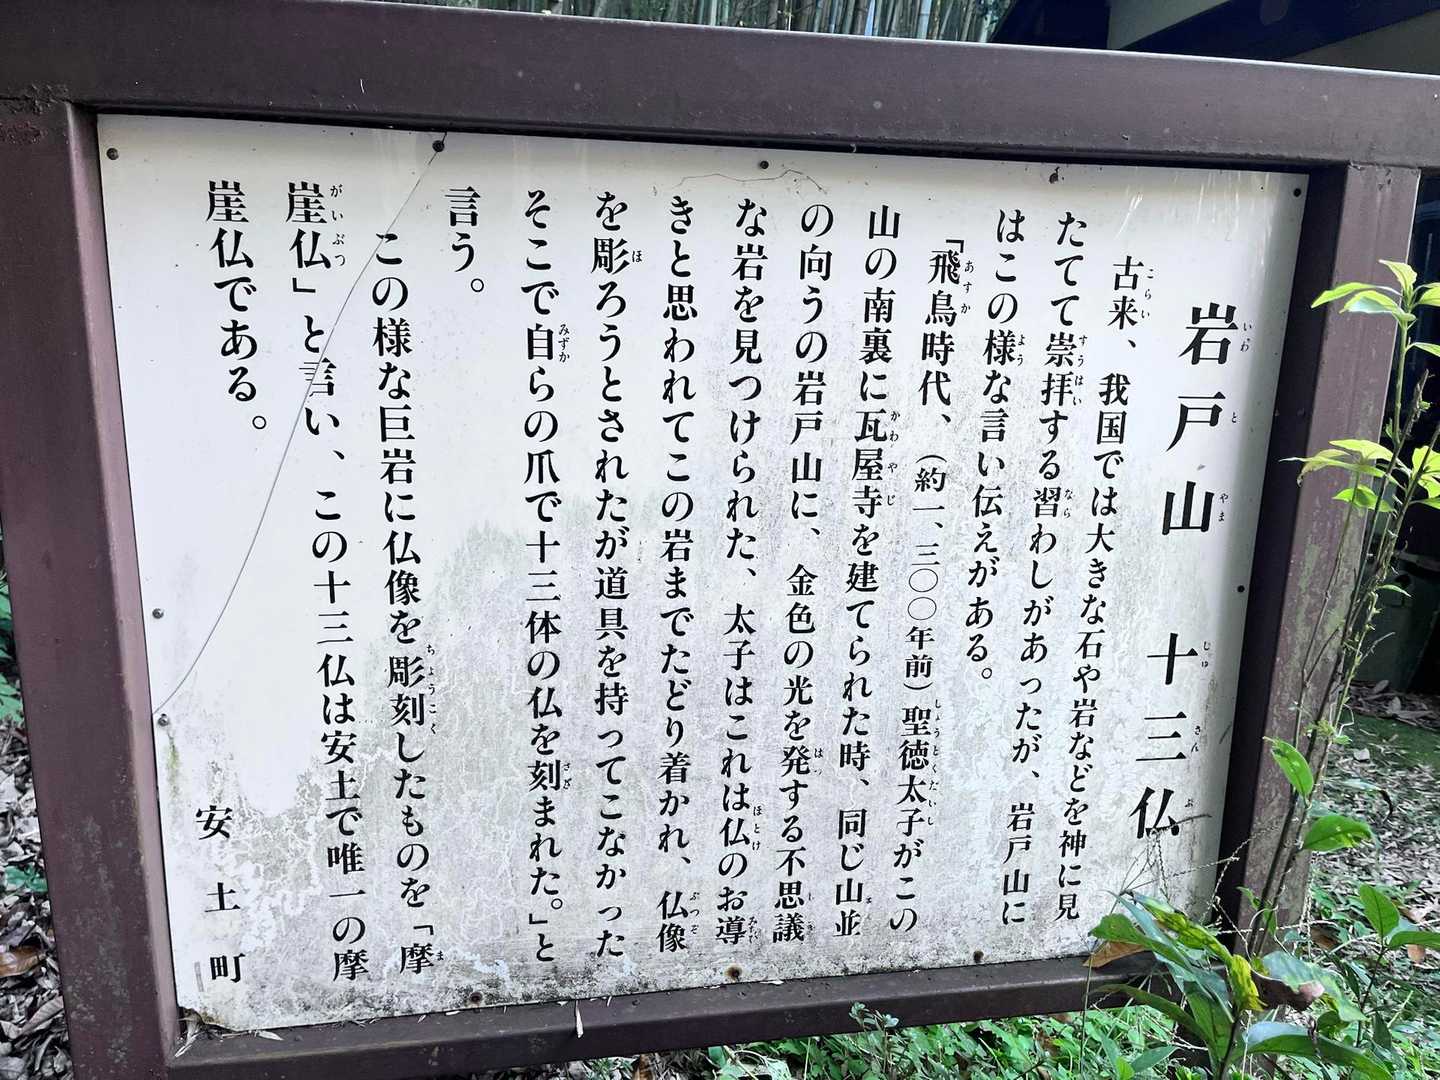 岩戸山　十三仏
古来、我国では大きな石や岩などを神に見
たてて崇拝する習わしがあったが、岩戸山に
はこの様な言い伝えがある。
「飛鳥時代、（約一、三〇〇年前）聖徳太子がこの
山の南裏に瓦屋寺を建てられた時、同じ山並
の向うの岩戸山に、金色の光を発する不思議
な岩を見つけられた、太子はこれは仏のお導
きと思われてこの岩までたどり着かれ、仏像
を彫ろうとされたが道具を持ってこなかった
そこで自らの爪で十三体の仏を刻まれた。」と
言う。
この様な巨岩に仏像を彫刻したものを「摩
崖仏」と言い、この十三仏は安土で唯一の摩
崖仏である。
安土町